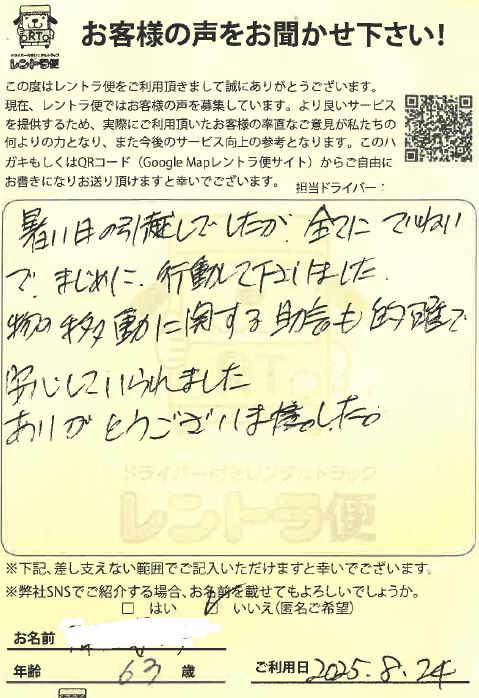 RTO
ドライバー付きレンタルトラック
レントラ便
お客様の声をお聞かせ下さい!
この度はレントラ便をご利用頂きまして誠にありがとうございます。
現在、レントラ便ではお客様の声を募集しています。より良いサービス
を提供するため、実際にご利用頂いたお客様の率直なご意見が私たちの
何よりの力となり、また今後のサービス向上の参考となります。このハ
ガキもしくはQRコード(Google Mapレントラ便サイト)からご自由に
お書きになりお送り頂けますと幸いでございます。
担当ドライバー:
暑い日の引越しでしたが、全てに
で、まじめに、行動して下さいました
物の移動に関する助言も的確で
安心していられました
ありがとうございました。
ドライバー付きレンタルトラック
レントラ便
※下記、差し支えない範囲でご記入いただけますと幸いでございます。
※弊社SNSでご紹介する場合、お名前を載せてもよろしいでしょうか。
□ はい □ いいえ(匿名ご希望)
お名前
年齢 63 歳
ご利用日 2025.8.24